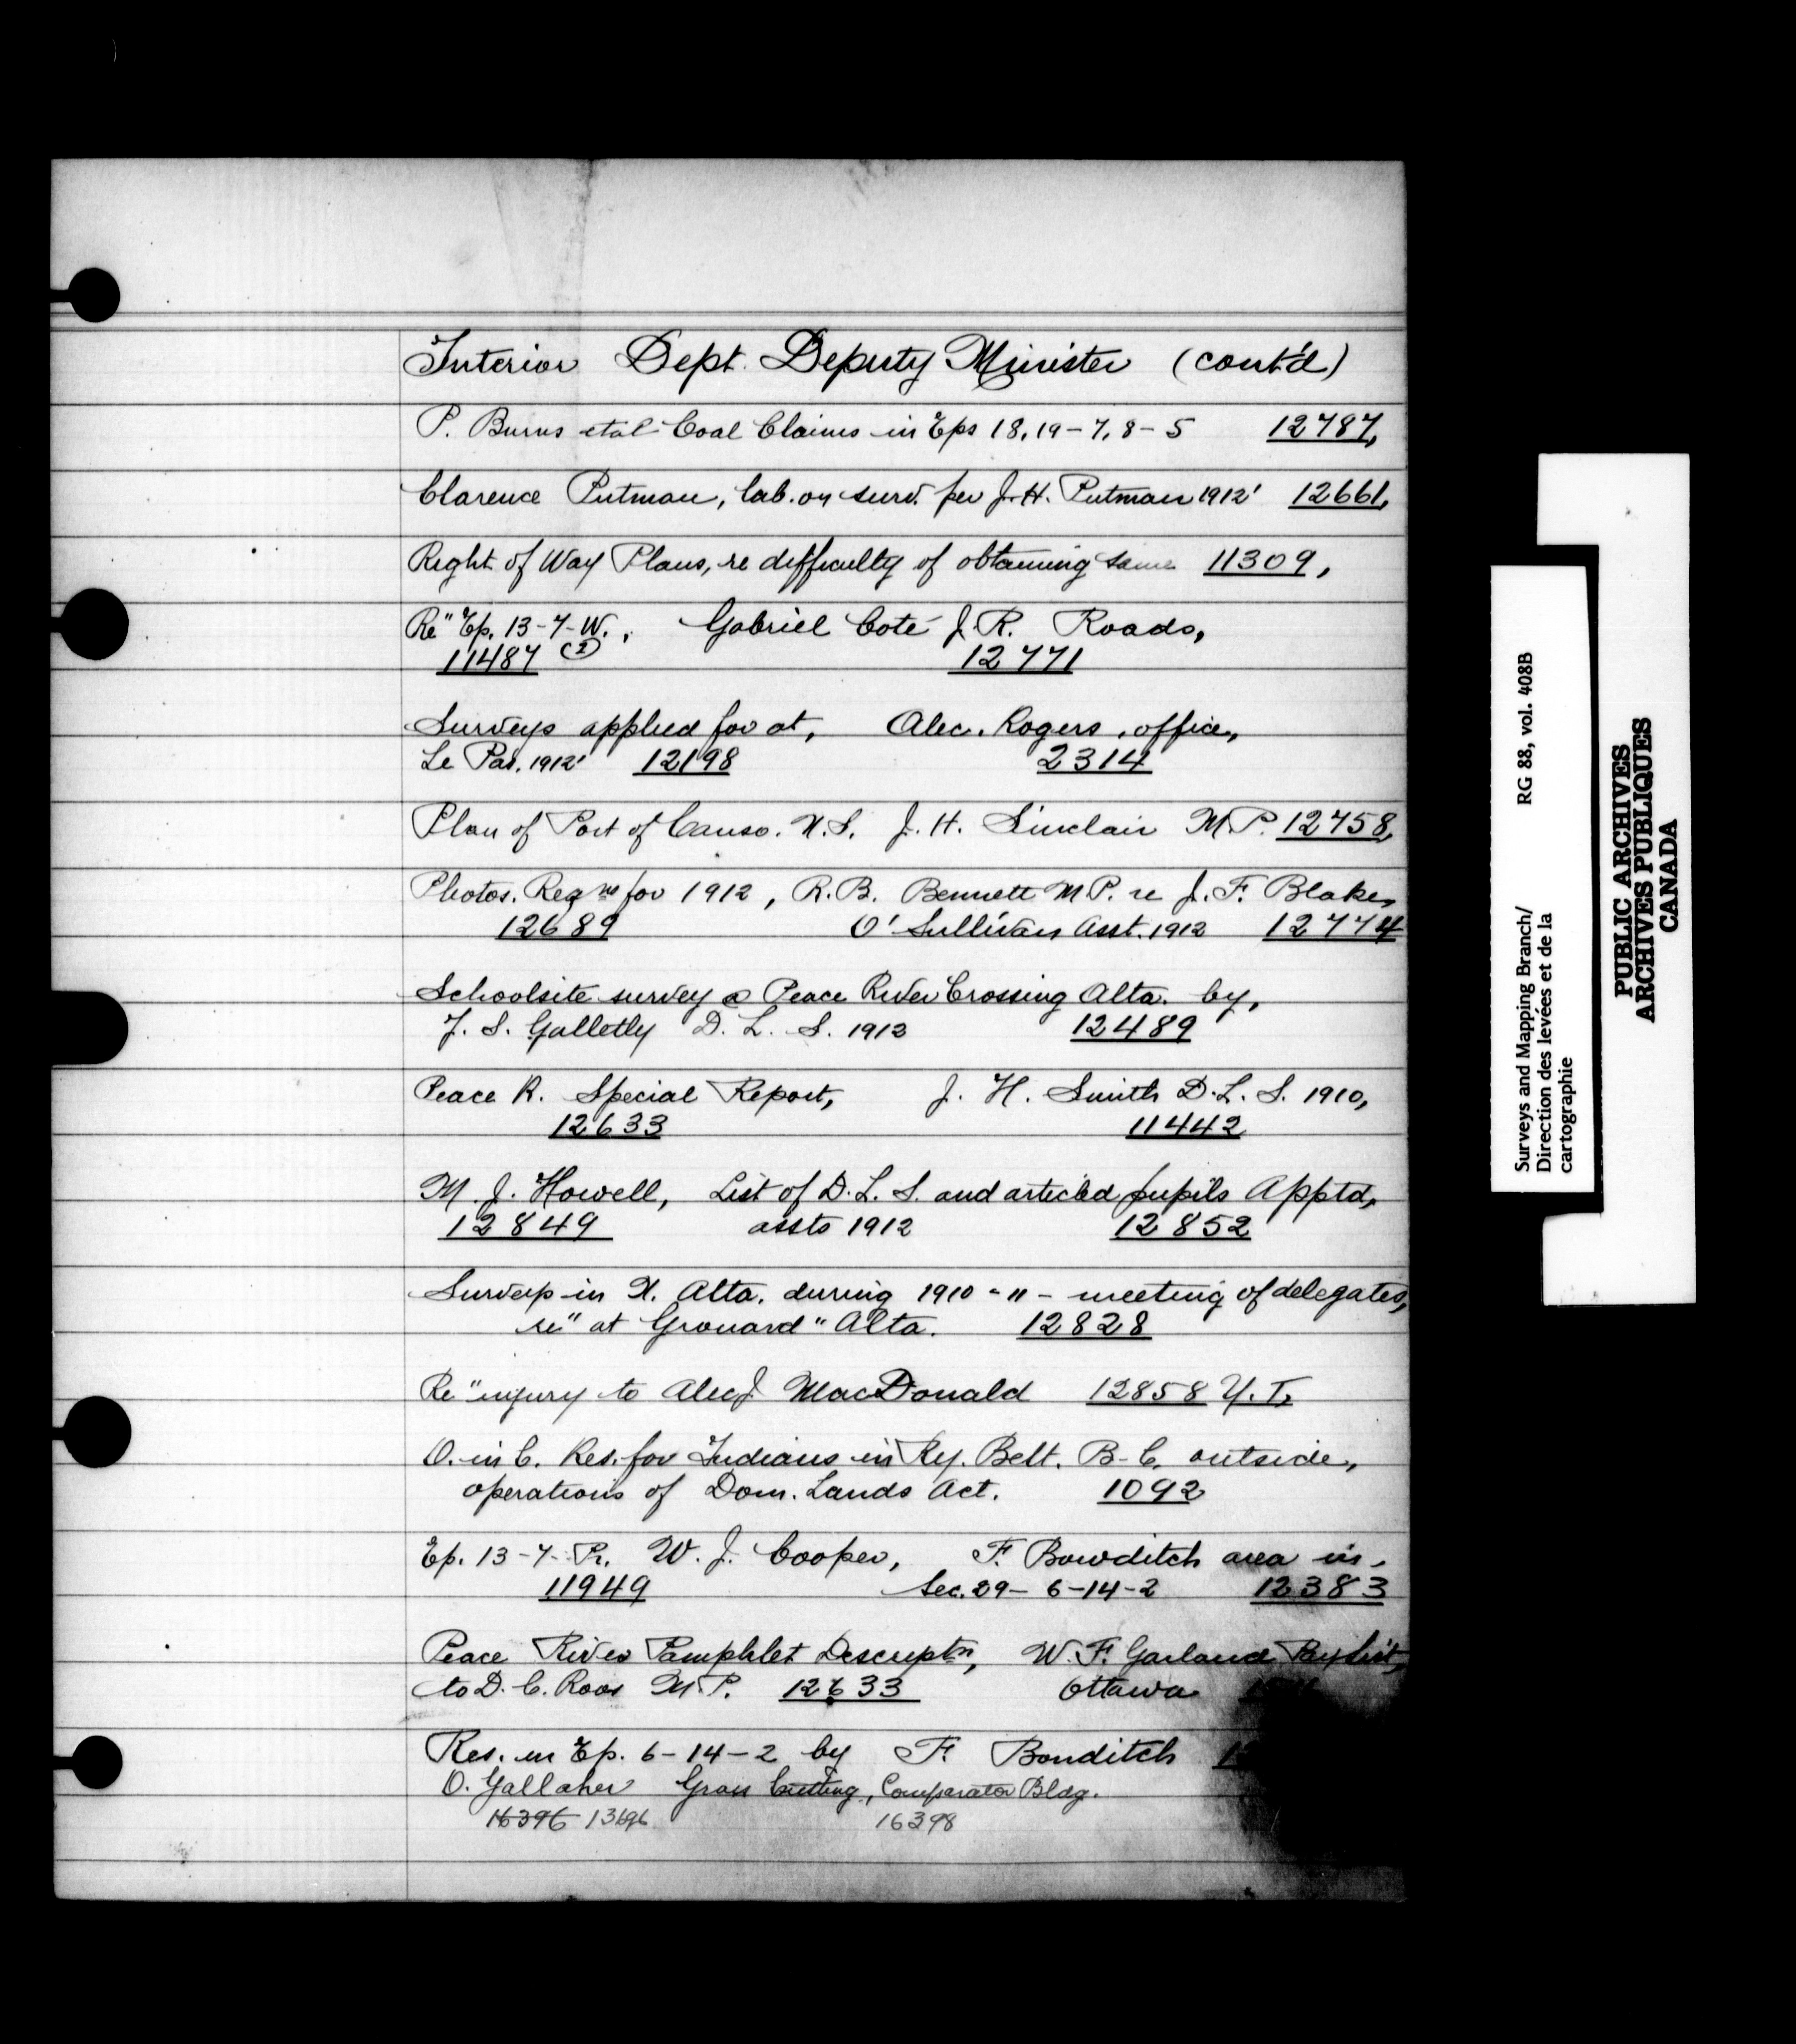 Interior Dept. Deputy Minister (cont'd)
P. Burns etal Coal Claims in Tps 18, 19 - 7, 8 - 5 12787,
Clarence Putman, lab. on surv. per J. H. Putman 1912' 12661,
Right of Way Plans, re difficulty of obtaining same 11309,
Re" Tp. 13-7-W., Gabriel Coté J. R. Roads,
11487 (2) 12771
Surveys applied for at, Alec. Rogers, office,
Le Pas. 1912' 12198 2314
Plan of Port of Canso. N.S. J. H. Sinclair M.P. 12758,
Photos. Reqns for 1912, R.B. Bennett M.P. re J. F. Blake,
12689 O'Sullivan Asst. 1912 12774
Schoolsite survey @ Peace River Crossing Alta. by,
J. S. Galletly D. L. S. 1912 12489
Peace R. Special Report, J. H. Smith D. L. S. 1910,
12633 11442
M. J. Howell, List of D. L. S. and articled pupils Apptd,
12849 assts 1912 12852
Surveys in N. Alta. during 1910 - 11 - meeting of delegates,
re" at Grouard" Alta. 12828
Re "injury to Alec J. MacDonald 12858 Y.T.
O. in C. Res. for Indians in Ry. Belt. B.C. outside,
operations of Dom. Lands Act. 1092
Tp. 13-7- Pr. W. J. Cooper, F. Bowditch area in,
11949 Sec. 29- 6-14-2 12383
Peace River Pamphlet Descriptn, W. F. Garland Pay List,
to D. C. Ross M.P. 12633 Ottawa
Res. in Tp. 6-14-2 by F. Bonditch
O. Gallaher Grass Cutting, Comparator Bldg.
16396 13696 16398
Surveys and Mapping Branch/ RG 88, vol. 408B
Direction des levées et de la
cartographie
PUBLIC ARCHIVES
ARCHIVES PUBLIQUES
CANADA